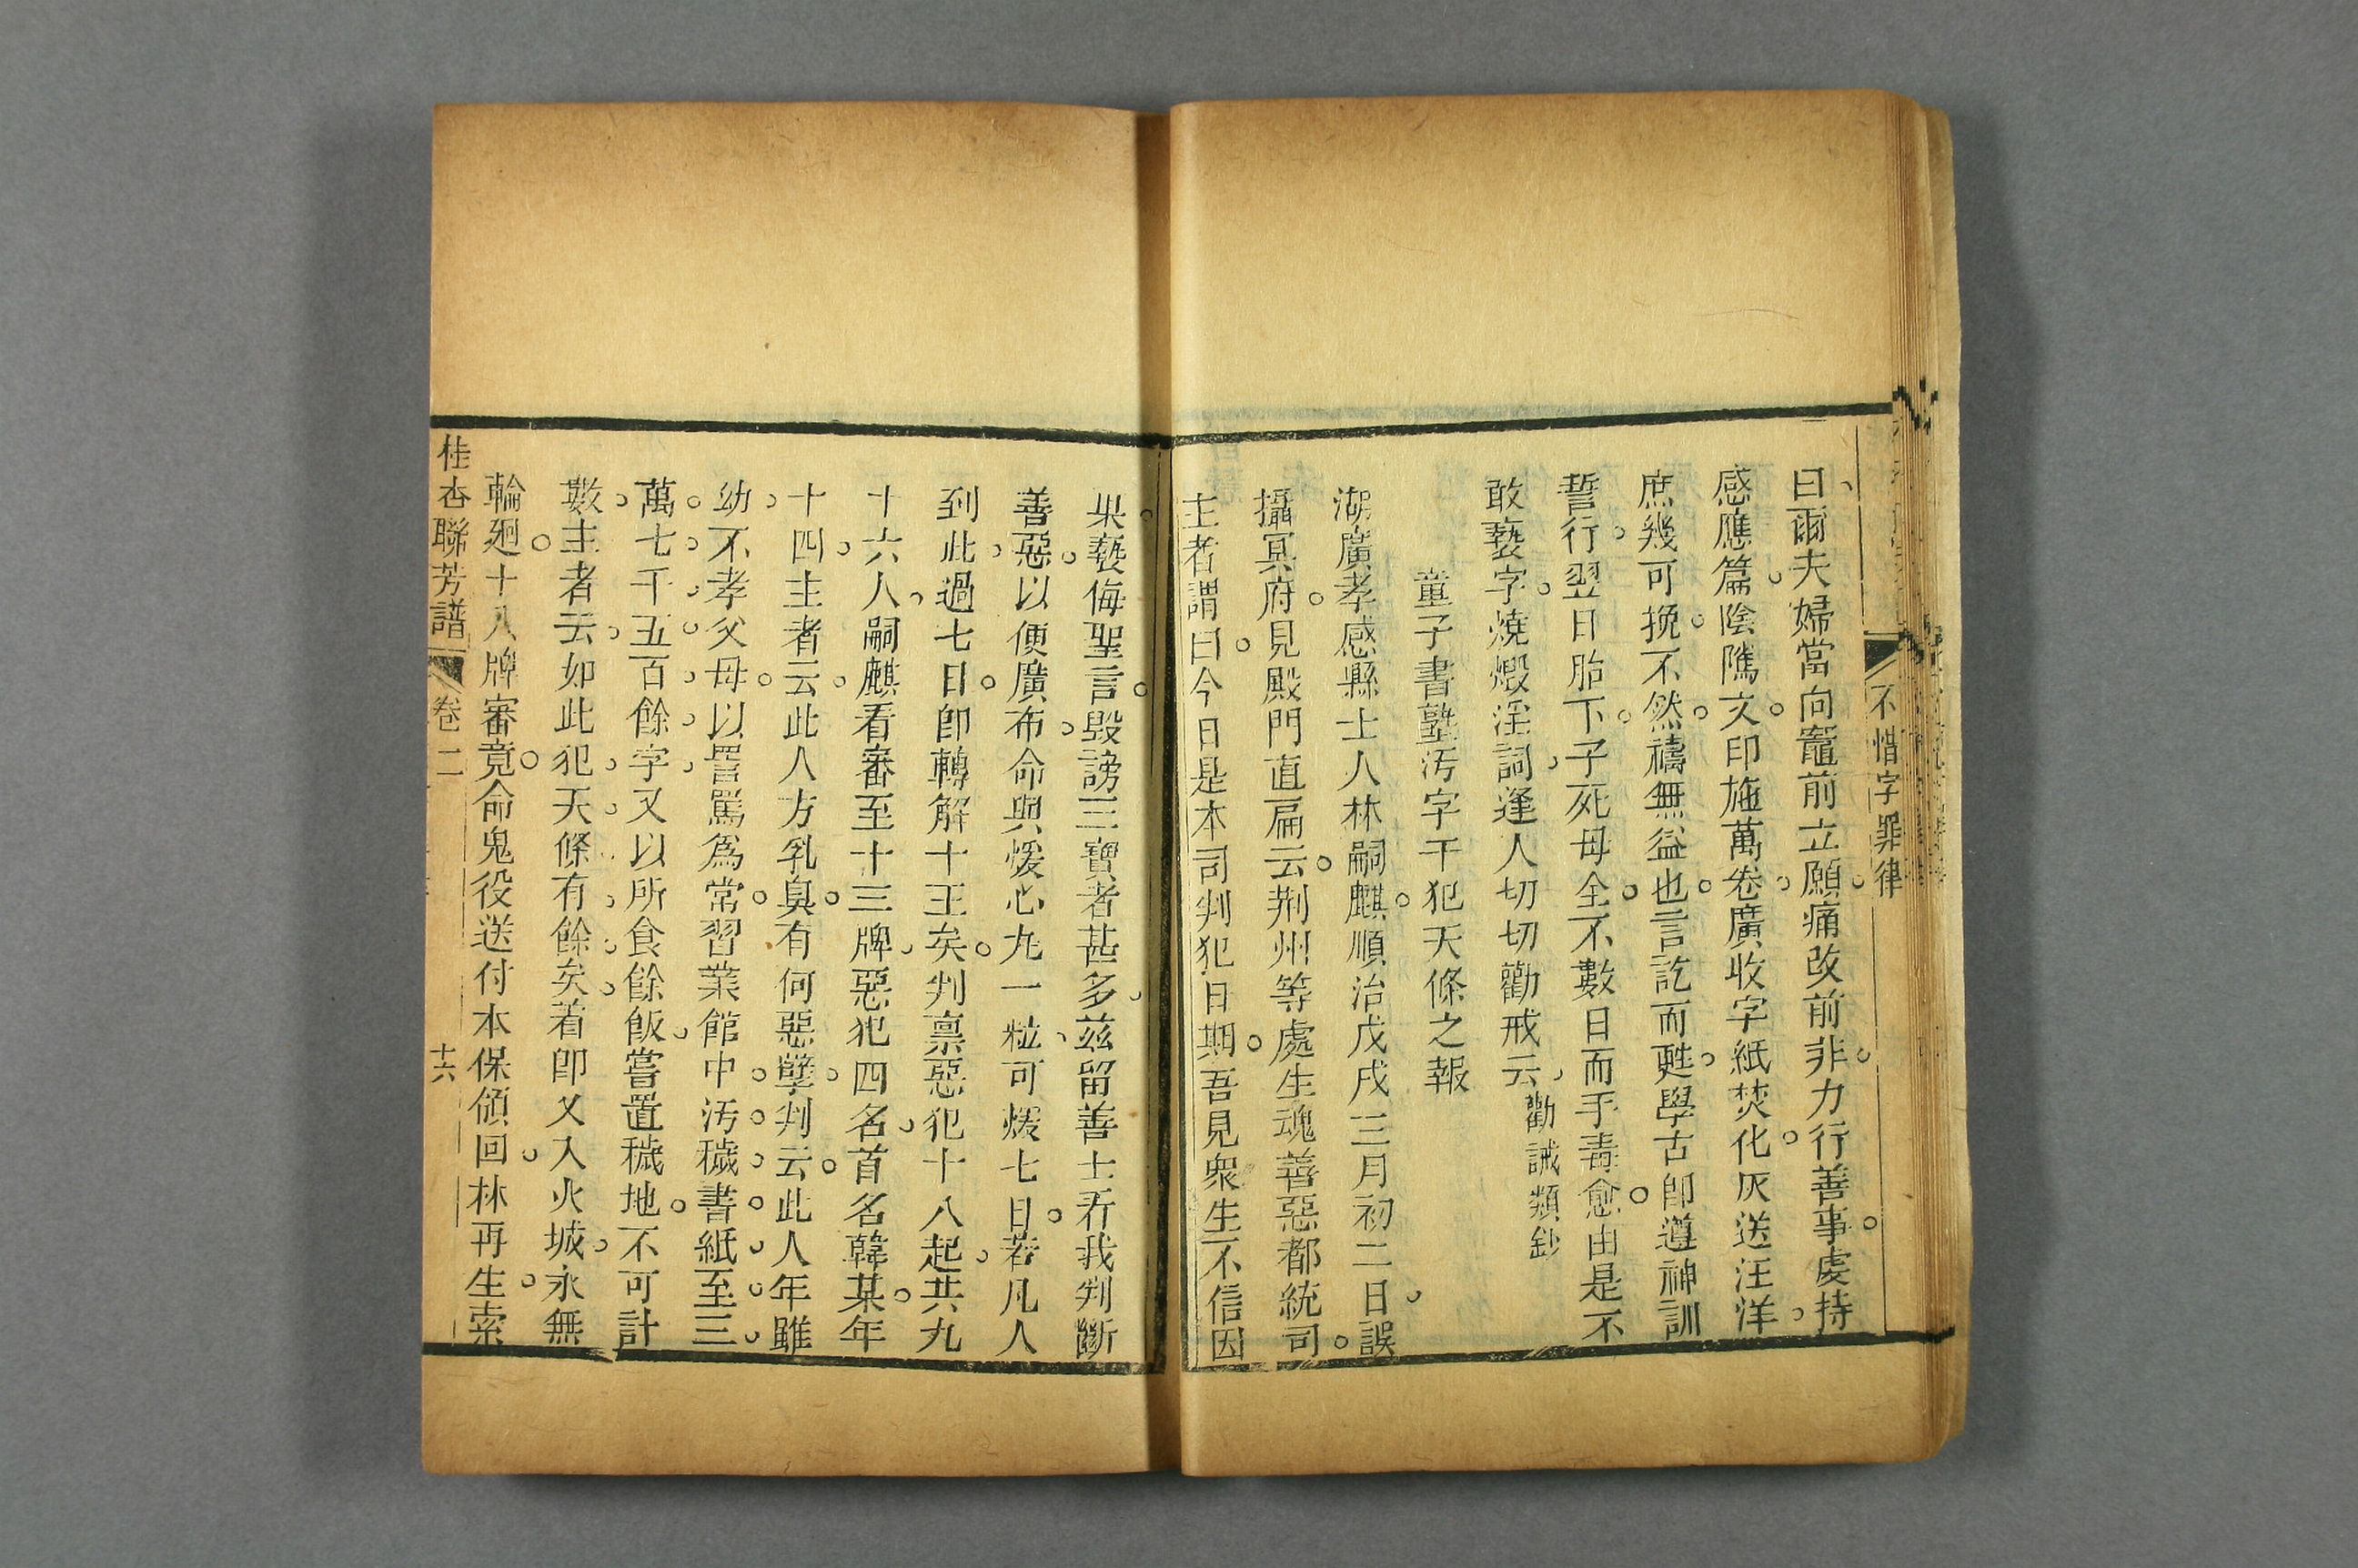 不惜字罪律
曰爾夫婦當向竈前立願痛改前非力行善事虔持
感應篇陰隲文印施萬卷廣收字紙焚化灰送汪洋
庶幾可挽不然禱無益也言訖而甦學古卽遵神訓
誓行翌日胎下子死母全不數日而手毒愈由是不
敢褻字燒燬淫詞逢人切切勸戒云勸誡類鈔
童子書塾汚字干犯天條之報
湖廣孝感縣士人林嗣麒順治戊戌三月初二日誤
攝冥府見殿門直扁云荆州等處生魂善惡都統司
主者謂曰今日是本司判犯日期吾見衆生不信因
果褻侮聖言毀謗三寶者甚多兹留善士看我判斷
善惡以便廣布命與煖心丸一粒可煖七日若凡人
到此過七日卽轉解十王矣判禀惡犯十八起共九
十六人嗣麒看審至十三牌惡犯四名首名韓某年
十四主者云此人方乳臭有何惡孽判云此人年雖
幼不孝父母以詈罵爲常習業館中汚穢書紙至三
萬七千五百餘字又以所食餘飯嘗置穢地不可計
數主者云如此犯天條有餘矣着卽乂入火城永無
輪廻十八牌審竟命鬼役送付本保領回林再生索
桂杏聯芳譜 卷二 十六